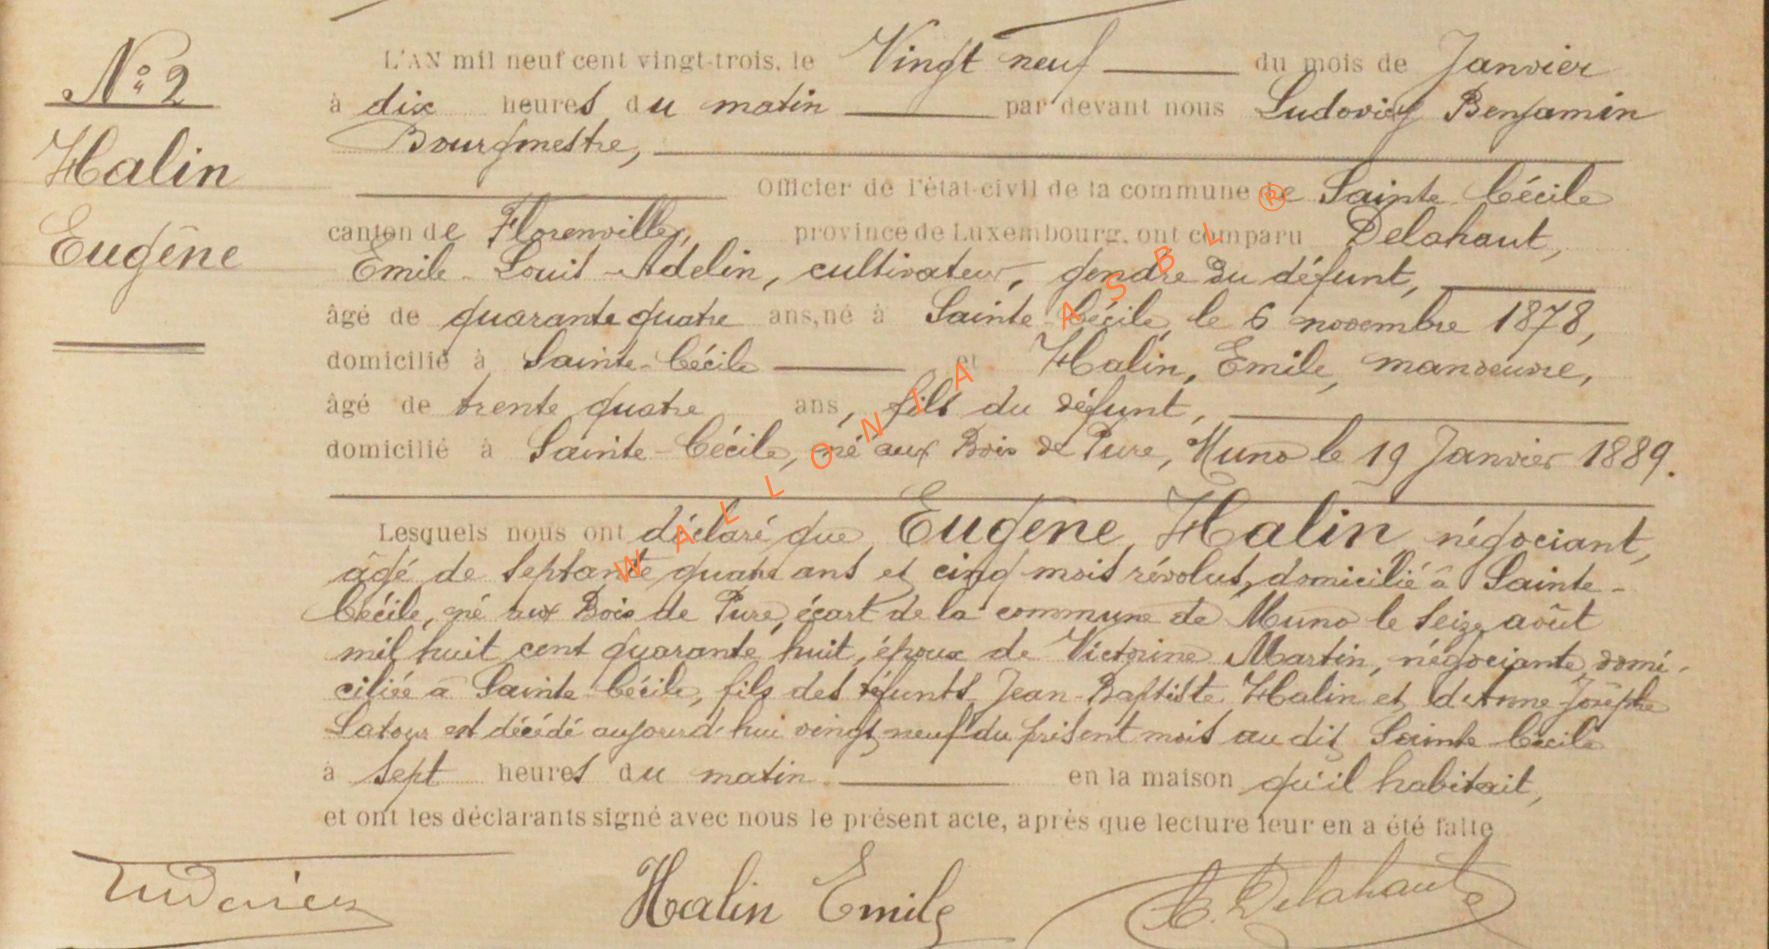 N° 2
Halin
Eugène
L'AN mil neuf cent vingt-trois, le Vingt neuf du mois de Janvier
à dix heures du matin par devant nous Ludovicy Benjamin
Bourgmestre,
Officier de l'état-civil de la commune de Sainte Cécile
canton de Florenville, province de Luxembourg, ont comparu Delahaut,
Emile Louis Adelin, cultivateur, gendre du défunt,
âgé de quarante quatre ans, né à Sainte Cécile, le 6 novembre 1878,
domicilié à Sainte-Cécile et Halin, Emile, manoeuvre,
âgé de trente quatre ans, fils du défunt,
domicilié à Sainte-Cécile, né aux Bois de Pure, Muno le 19 Janvier 1889.
Lesquels nous ont déclaré que Eugène Halin négociant,
âgé de septante quatre ans et cinq mois révolus, domicilié à Sainte-
Cécile, né aux Bois de Pure, écart de la commune de Muno le seize août
mil huit cent quarante huit, époux de Victorine Martin, négociante, domi-
ciliée à Sainte Cécile, fils des défunts Jean-Baptiste Halin et d'Anne-Josèphe
Latour est décédé aujourd'hui vingt neuf du présent mois au dit Sainte Cécile
à sept heures du matin en la maison qu'il habitait,
et ont les déclarants signé avec nous le présent acte, après que lecture leur en a été faite
Ludovicy Halin Emile E. Delahaut
WALLONIA ASBL ®